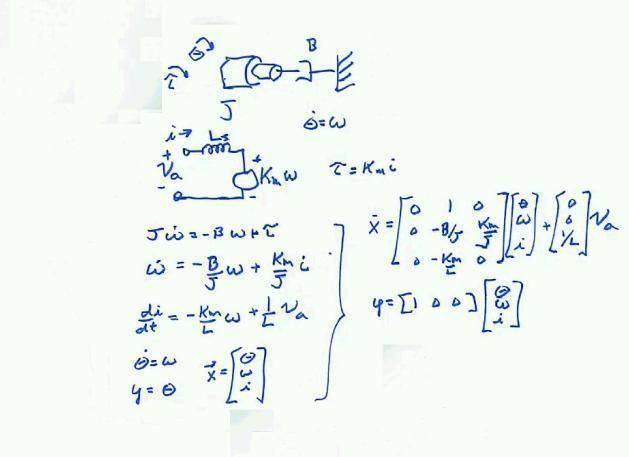 θ
B
τ
J
θ̇ = ω
i → Ls
+ Va - + Km ω -
τ = Km i
J ω̇ = -B ω + τ
ω̇ = -B/J ω + Km/J i
di/dt = -Km/L ω + 1/L Va
θ̇ = ω
y = θ
x⃗ = [θ ω i]
ẋ = [0 1 0
0 -B/J Km/J
0 -Km/L 0] [θ ω i] + [0 0 1/L] Va
y = [1 0 0] [θ ω i]